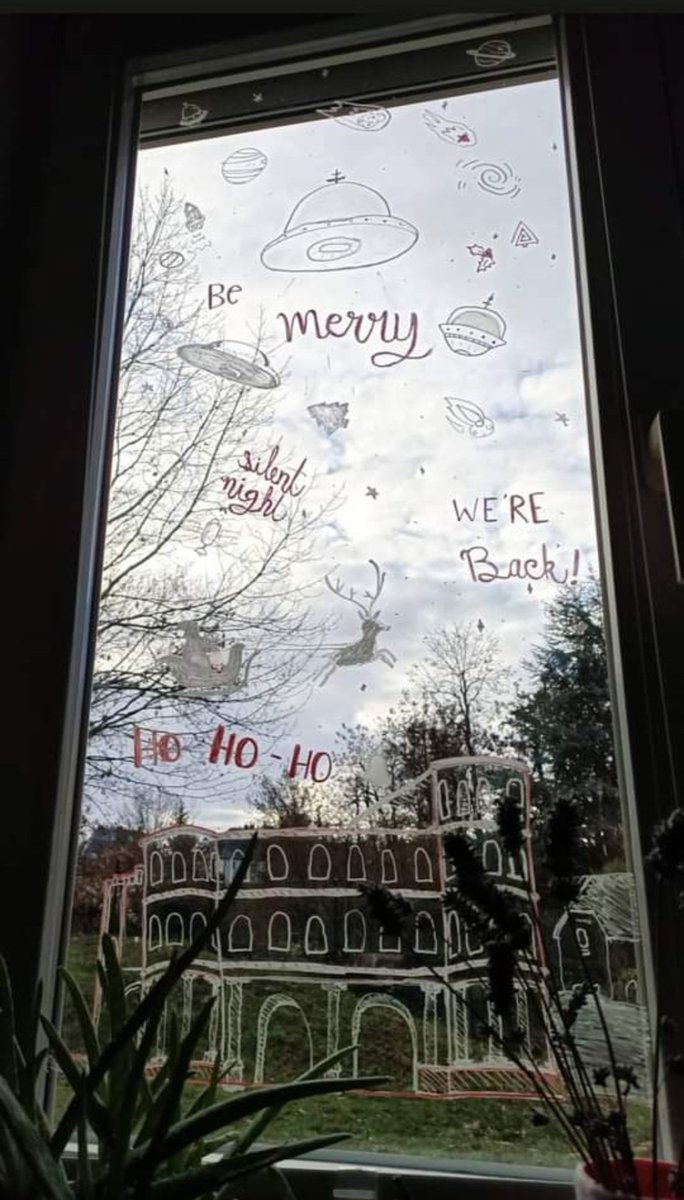 Be
merry
silent
night
WE'RE
Back!
HO HO-HO